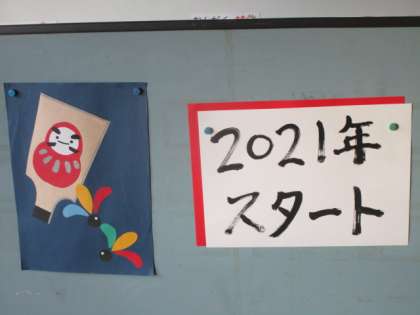 2021年
スタート